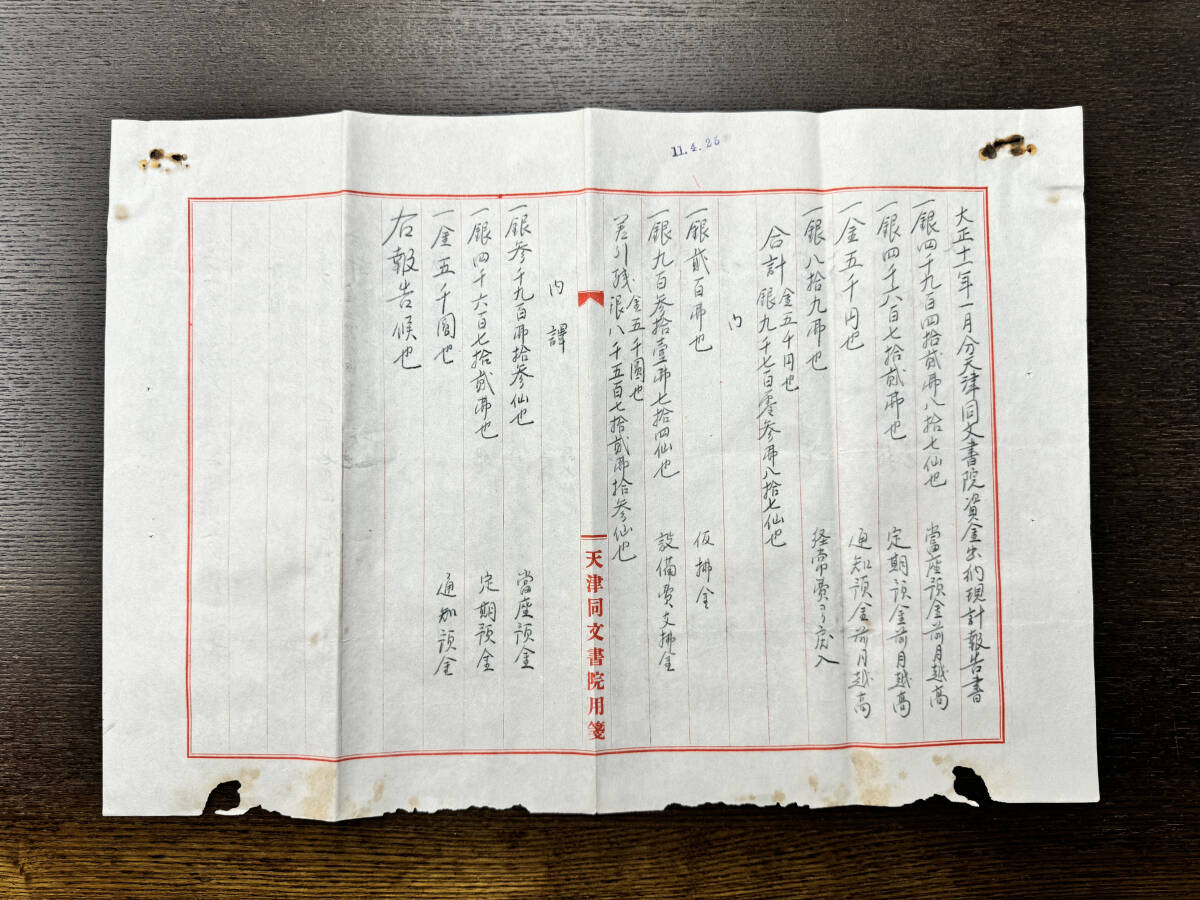 11.4.25
大正十一年一月分天津同文書院資金出納現計報告書
一銀四千九百四拾貳弗八拾七仙也 當座預金前月越高
一銀四千六百七拾貳弗也 定期預金前月越高
一金五千円也 通知預金前月越高
一銀八拾九弗也 経常費ヨリ戻入
合計 金五千円也
銀九千七百零参弗八拾七仙也
内
一銀貳百弗也 仮拂金
一銀九百参拾壹弗七拾四仙也 設備費支拂金
差引残 金五千圓也
銀八千五百七拾貳弗拾参仙也
天津同文書院用箋
内譯
一銀参千九百弗拾参仙也 當座預金
一銀四千六百七拾貳弗也 定期預金
一金五千圓也 通知預金
右報告候也